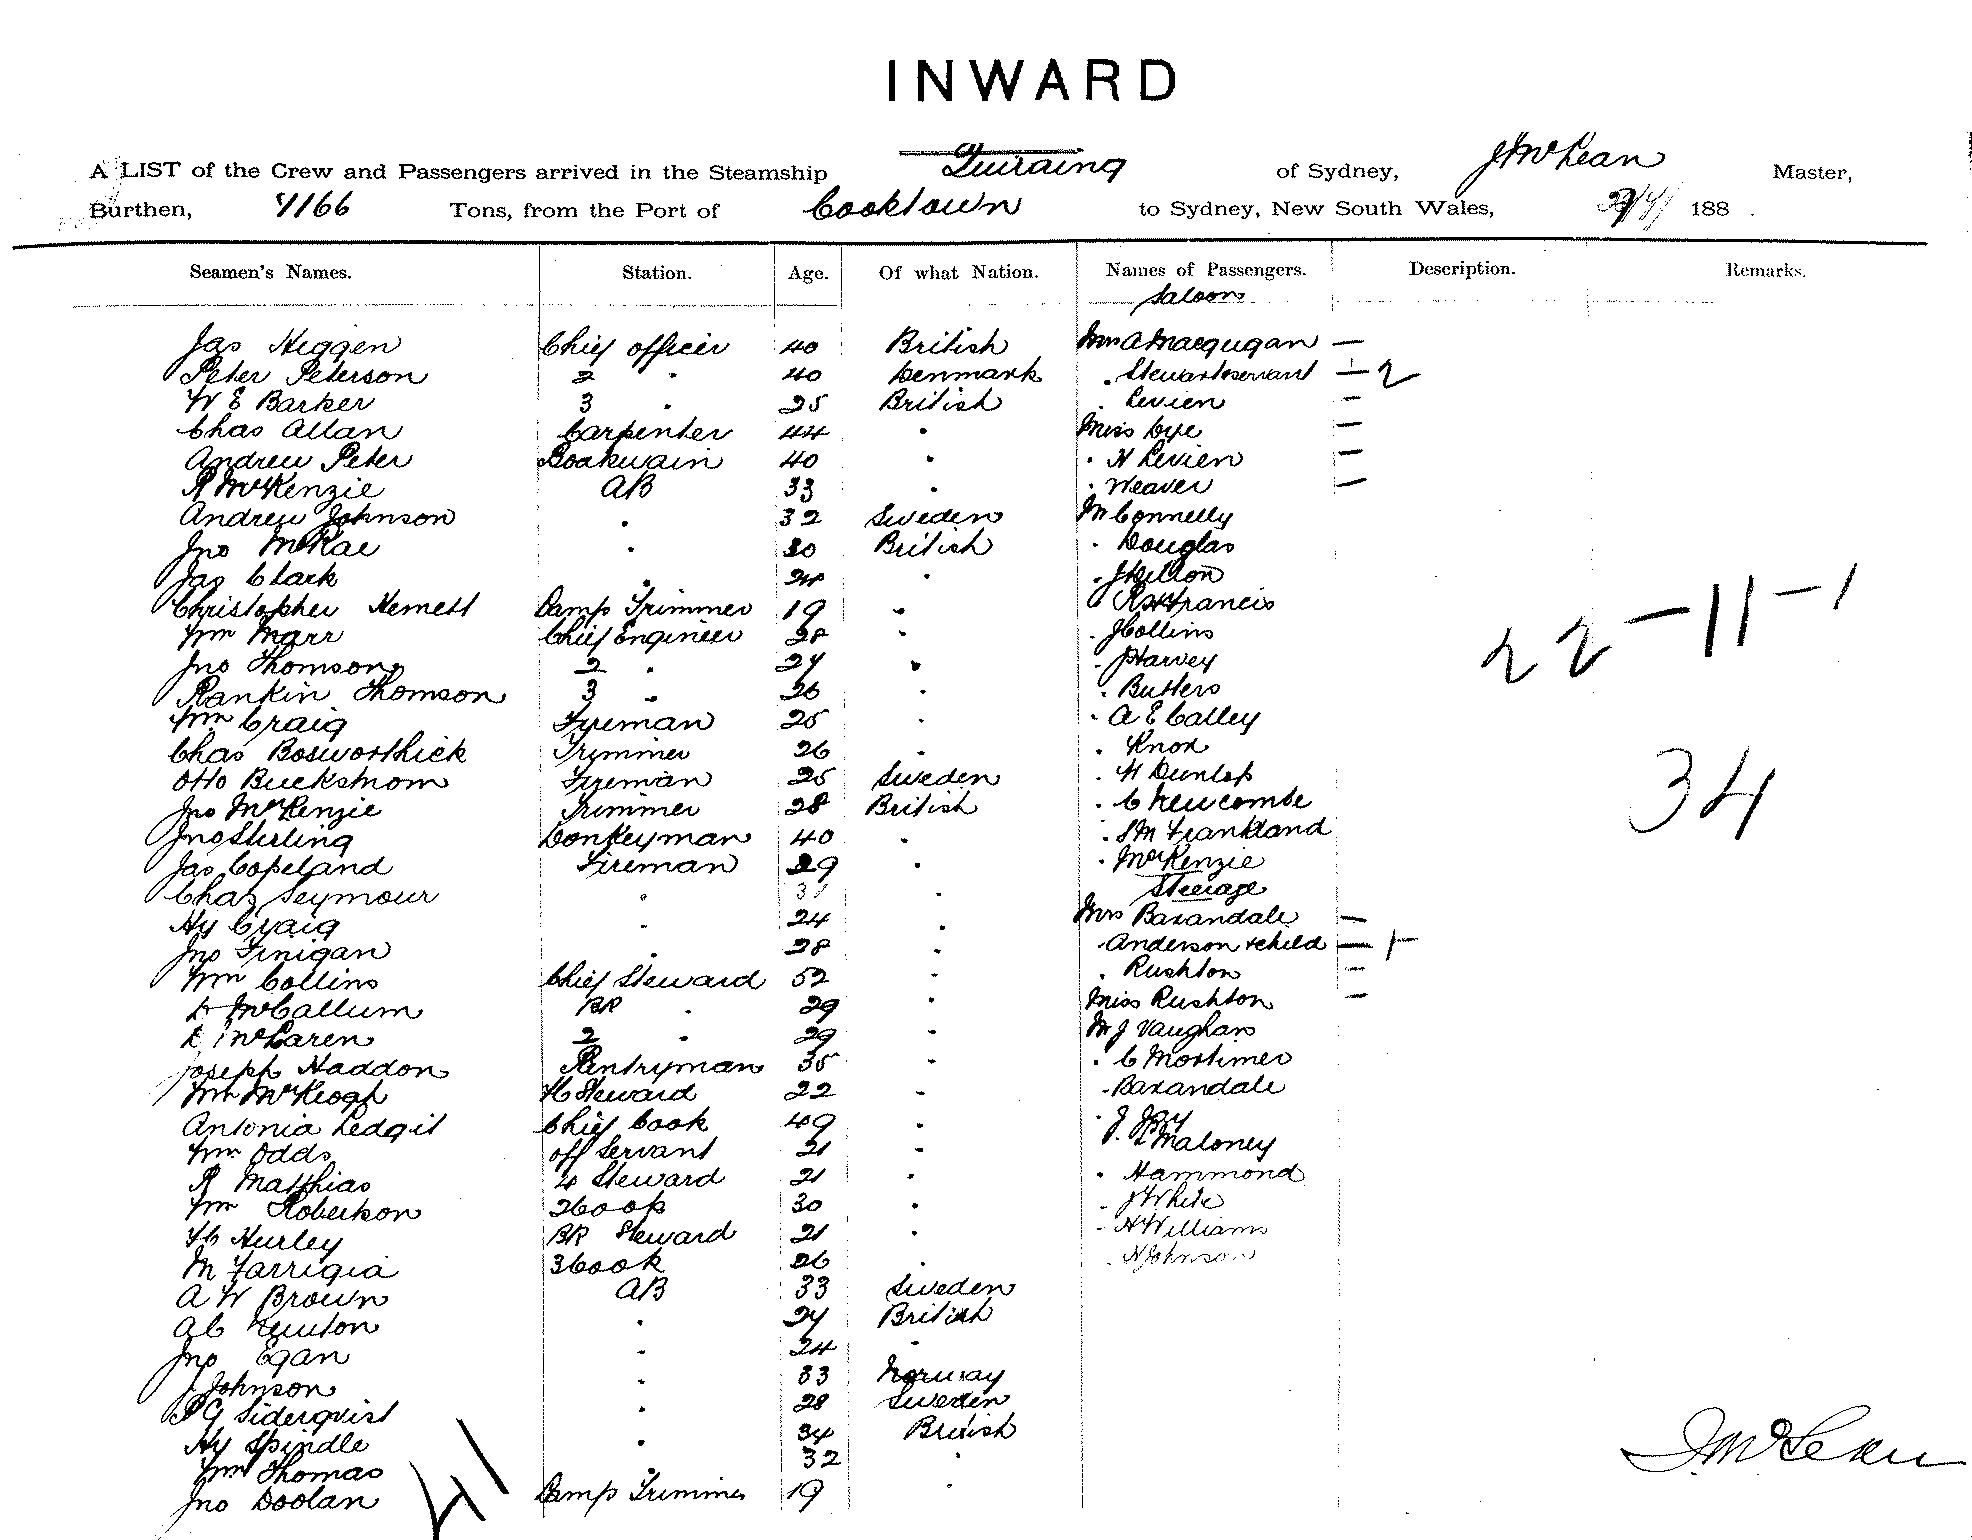 INWARD
A LIST of the Crew and Passengers arrived in the Steamship Quiraing of Sydney, J McLean Master,
Burthen, 1166 Tons, from the Port of Cooktown to Sydney, New South Wales, 188
Seamen's Names. Station. Age. Of what Nation. Names of Passengers. Description. Remarks.
Saloon
Jas Heggen Chief officer 40 British Mrs A Macgugan —
Peter Peterson 2 " 40 Denmark " Stewart & servant — 2
W E Barker 3 " 25 British " Levien —
Chas Allan Carpenter 44 " Miss Cye —
Andrew Peter Boatswain 40 " " H Levien —
R McKenzie AB 33 " " Weaver —
Andrew Johnson " 32 Sweden Mr Connelly
Jno McRae " 30 British " Douglas
Jas Clark " 24 " " J Hilton
Christopher Hemett Lamp Trimmer 19 " " R H Francis
Wm Marr Chief Engineer 28 " " J Collins
Jno Thomson 2 " 27 " " J Harvey
Rankin Thomson 3 " 26 " " Butters
Wm Craig Fireman 25 " " A E Calley
Chas Bosworthick Trimmer 26 " " Knox
Otto Buckstrom Fireman 25 Sweden " H Dunlop
Jno McKenzie Trimmer 28 British " C Newcombe
Jno Sterling Donkeyman 40 " " S M Frankland
Jas Copeland Fireman 29 " " McKenzie
Steerage
Chas Seymour " 31 "
Hy Craig " 24 " Mrs Baxandale —
Jno Finigan " 28 " " Anderson & child — 1
Wm Collins Chief Steward 52 " " Rushton —
D McCallum BR " 29 " Miss Rushton —
D McLaren 2 " 29 " Mr J Vaughan
Joseph Haddon Pantryman 35 " " C Mortimer
Wm McKeogh H Steward 22 " " Baxandale
Antonia Ledgit Chief Cook 49 " " J Joy
Wm Odds off Servant 21 " " L Maloney
R Matthias 4 Steward 21 " " Hammond
Wm Robertson 2 Cook 30 " " J White
Th Hurley BR Steward 21 " " H Williams
M Farrigia 3 Cook 26 " " H Johnson
A W Brown AB 33 Sweden
A C Newton " 24 British
Jno Egan " 24 "
J Johnson " 33 Norway
P G Siderqvist " 28 Sweden
Hy Spindle " 34 British
Wm Thomas " 32 "
Jno Doolan Lamp Trimmer 19 "
22 — 11 — 1
34
41
J. McLean